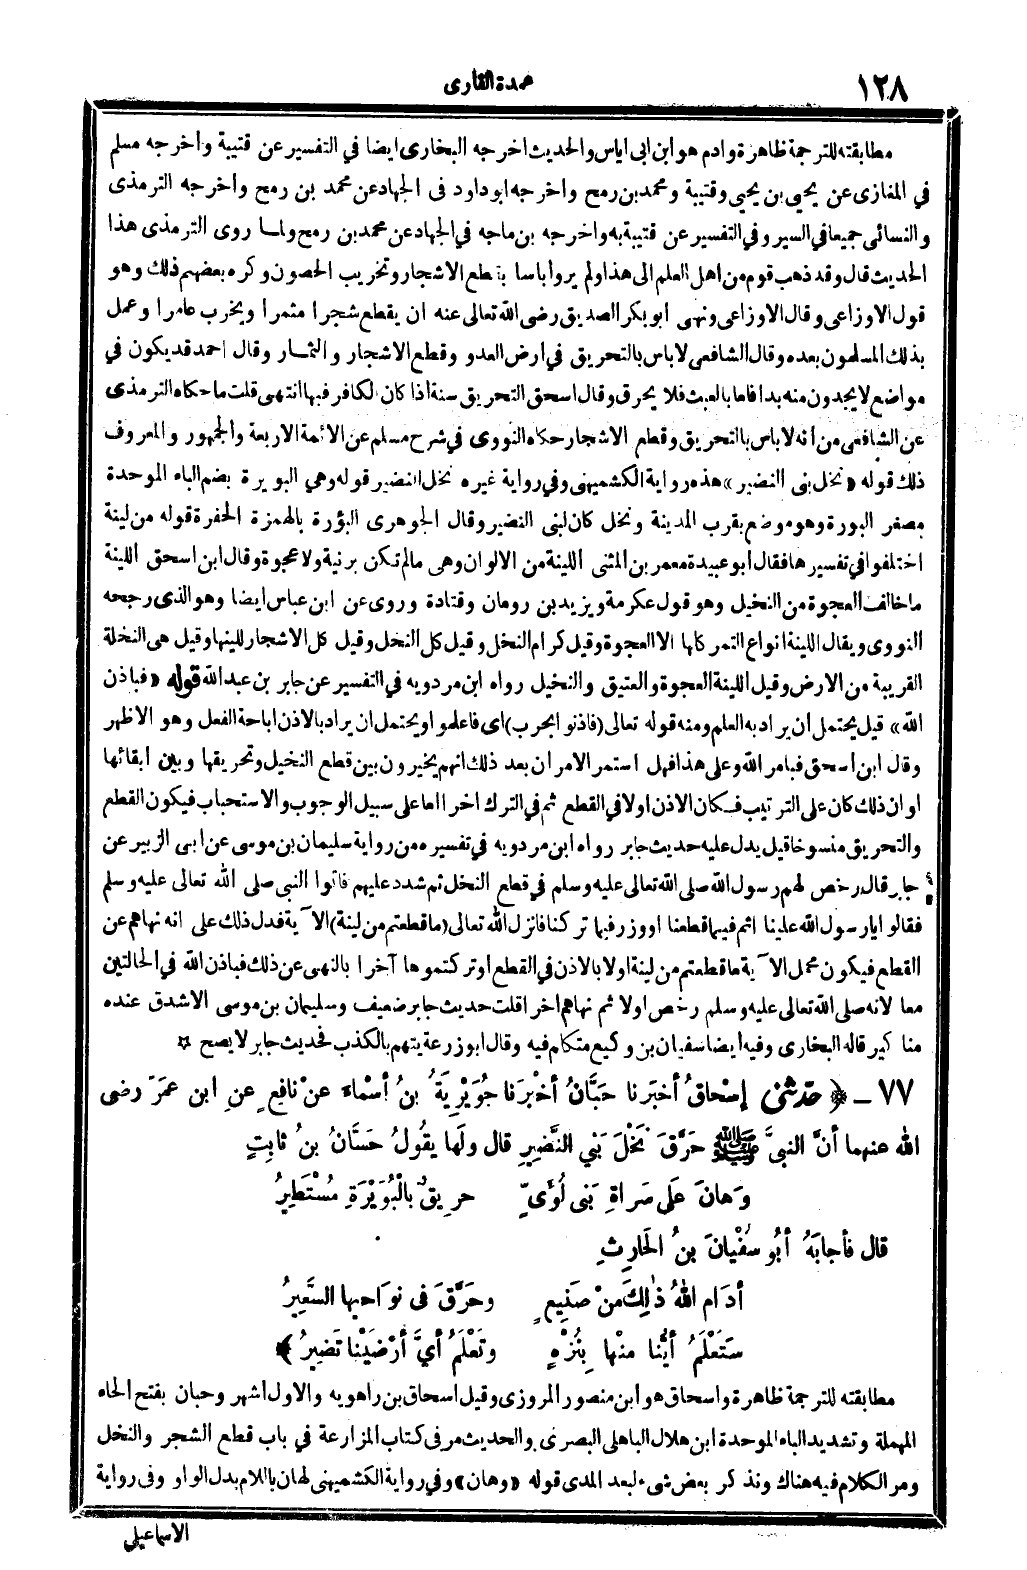 ١٢٨
عمدة القارى
مطابقته للترجمة ظاهرة وادم هو ابن ابى اياس والحديث اخرجه البخارى ايضا في التفسير عن قتيبة واخرجه مسلم
في المغازى عن يحيى بن يحيى وقتيبة ومحمد بن رمح واخرجه ابو داود فى الجهاد عن محمد بن رمح واخرجه الترمذى
والنسائى جميعا في السير وفي التفسير عن قتيبة به واخرجه بن ماجه في الجهاد عن محمد بن رمح ولما روى الترمذى هذا
الحديث قال وقد ذهب قوم من اهل العلم الى هذا ولم يروا باسا بقطع الاشجار وتخريب الحصون وكره بعضهم ذلك وهو
قول الاوزاعى وقال الاوزاعى ونهى ابو بكر الصديق رضى الله تعالى عنه ان يقطع شجرا مثمرا ويخرب عامرا وعمل
بذلك المسلمون بعده وقال الشافعى لا باس بالتحريق في ارض العدو وقطع الاشجار والثمار وقال احمد قد يكون في
مواضع لا يجدون منه بدا فاما بالعبث فلا يحرق وقال اسحق التحريق سنة اذا كان الكافر فيها انتهى قلت ما حكاه الترمذى
عن الشافعى من أنه لا باس بالتحريق وقطع الاشجار حكاه النووى في شرح مسلم عن الائمة الاربعة والجمهور والمعروف
ذلك قوله «نخل بنى النضير» هذه رواية الكشميهنى وفي رواية غيره نخل النضير قوله وهي البويرة بضم الباء الموحدة
مصغر البورة وهو موضع بقرب المدينة ونخل كان لبنى النضير وقال الجوهرى البؤرة بالهمزة الحفرة قوله من لينة
اختلفوا في تفسيرها فقال أبو عبيدة معمر بن المثنى اللينة من الالوان وهى مالم تكن برنية ولا عجوة وقال ابن اسحق اللينة
ما خالف العجوة من النخيل وهو قول عكرمة ويزيد بن رومان وقتادة وروى عن ابن عباس ايضا وهو الذى رجحه
النووى ويقال اللينة انواع التمر كلها الا العجوة وقيل كرام النخل وقيل كل النخل وقيل كل الاشجار للينها وقيل هى النخلة
القريبة من الارض وقيل اللينة العجوة والعتيق والنخيل رواه ابن مردويه في التفسير عن جابر بن عبد الله قوله «فباذن
الله» قيل يحتمل أن يراد به العلم ومنه قوله تعالى (فاذنوا بحرب) اى فاعلموا ويحتمل ان يراد بالاذن اباحة الفعل وهو الاظهر
وقال ابن أسحق فبامر الله وعلى هذا فهل استمر الامر ان بعد ذلك انهم يخيرون بين قطع النخيل وتحريقها وبين أبقائها
او ان ذلك كان على الترتيب فكان الاذن اولا في القطع ثم في الترك اخرا اما على سبيل الوجوب والاستحباب فيكون القطع
والتحريق منسوخا قيل يدل عليه حديث جابر رواه ابن مردويه في تفسيره من رواية سليمان بن موسى عن ابى الزبير عن
جابر قال رخص لهم رسول الله صلى الله تعالى عليه وسلم في قطع النخل ثم شدد عليهم فاتوا النبى صلى الله تعالى عليه وسلم
فقالوا يا رسول الله علينا اثم فيما قطعنا او وزر فيما تركنا فانزل الله تعالى (ما قطعتم من لينة) الآية فدل ذلك على انه نهاهم عن
القطع فيكون محمل الآية ما قطعتم من لينة اولا بالاذن في القطع او تركتموها آخرا بالنهى عن ذلك فباذن الله في الحالتين
معا لانه صلى الله تعالى عليه وسلم رخص اولا ثم نهاهم اخرا قلت حديث جابر ضعيف وسليمان بن موسى الاشدق عنده
مناكير قاله البخارى وفيه ايضا سفيان بن وكيع متكلم فيه وقال ابو زرعة يتهم بالكذب فحديث جابر لا يصح ✩
٧٧ ــ ﴿ حَدَّثَنِى إِسْحَاقُ أَخْبَرَنَا حَبَّانُ أَخْبَرَنَا جُوَيْرِيَةُ بنُ أَسْمَاءَ عنْ نافِعٍ عنِ ابن عمَرَ رضى
الله عنهما أنَّ النبىَّ ﷺ حَرَّقَ نَخْلَ بَنِي النَّضِيرِ قال ولَها يقُولُ حَسَّانُ بنُ ثابِتٍ
وَهانَ علَى سَراةِ بَنى لُوَىٍّ حرِيقٌ بالْبُوَيْرَةِ مُسْتَطِيرُ
قال فأجابَهُ أبُو سُفْيانَ بنُ الحَارِثِ
أدَام اللهُ ذٰلِكَ مِنْ صَنِيعٍ وحَرَّقَ فى نوَاحِيها السَّعِيرُ
سَتَعْلَمُ أيُّنا مِنْها بِنُزْهٍ وتَعْلَمُ أىَّ أرْضَيْنا تَضِيرُ ﴾
مطابقته للترجمة ظاهرة واسحاق هو ابن منصور المروزى وقيل اسحاق بن راهويه والاول اشهر وحبان بفتح الحاء
المهملة وتشديد الباء الموحدة ابن هلال الباهلى البصرى والحديث مر فى كتاب المزارعة في باب قطع الشجر والنخل
ومر الكلام فيه هناك ونذكر بعض شىء لبعد المدى قوله «وهان» وفي رواية الكشميهنى لهان باللام بدل الواو وفى رواية
الاسماعيلى